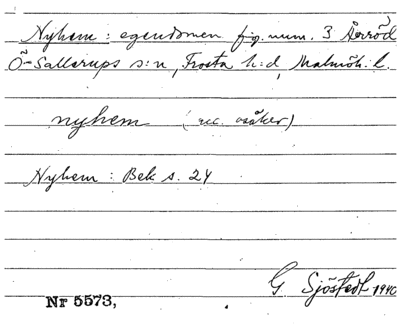 Nyhem: egendomen fig. num. 3 Åsröd
Ö-Sallerups s:n, Frosta h:d, Malmöh. l.
nyhem (acc. osäker)
Nyhem: Bek s. 24
G. Sjöstedt 1940
Nr 5573,